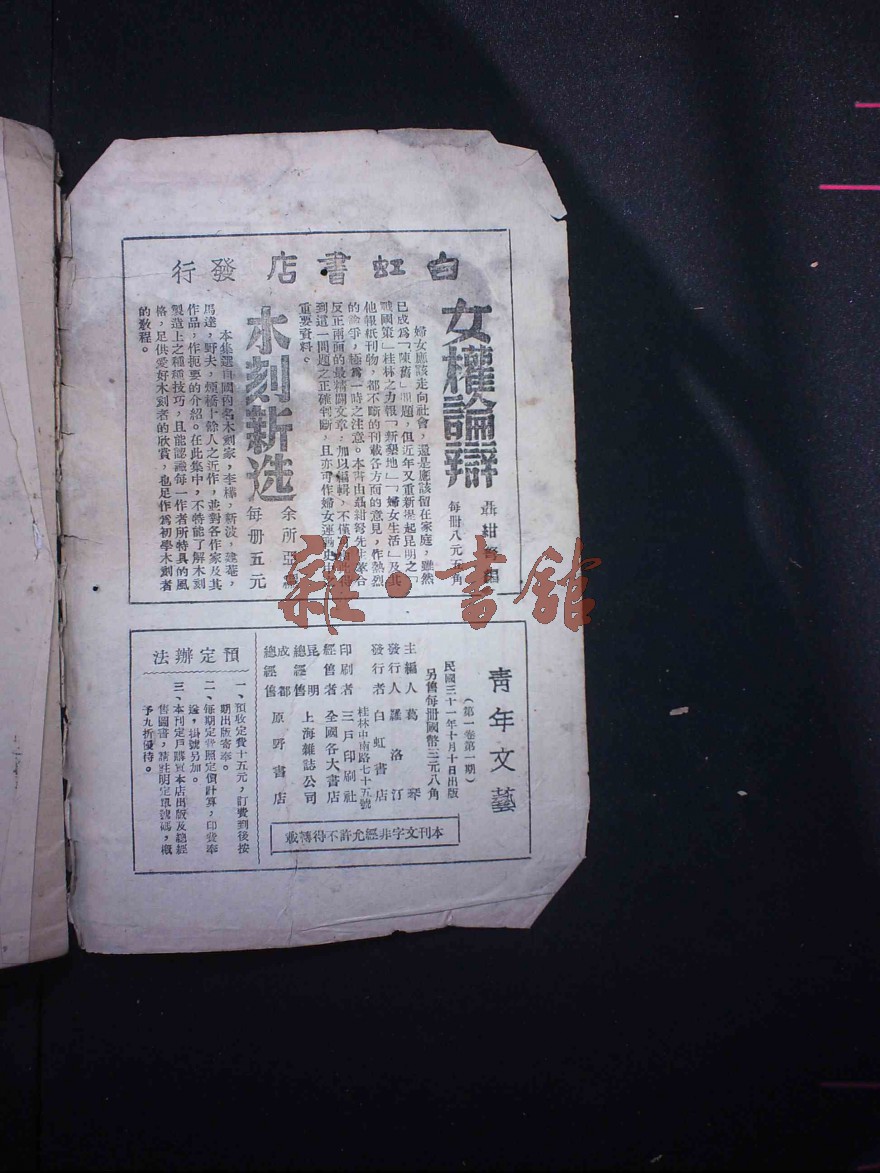 白虹書店發行
女權論辯
聶紺弩編
每册八元五角
婦女應該走向社會，還是應該留在家庭，雖然
已成爲「陳舊」問題，但近年又重新提起昆明之「
戰國策」桂林之力報「新墾地」「婦女生活」及其
他報紙刊物，都不斷的刊載各方面的意見，作熱烈
的論爭，極爲一時之注意。本書由聶紺弩先生
反正兩面的最精闢文章，加以編輯，不僅
到這一問題之正確判斷，且亦可作婦女運動史
重要資料。
木刻新选
余所亞編
每册五元
本集選自國內名木刻家，李樺，新波，建菴，
馬達，野夫，煙橋十餘人之近作，並對各作家及其
作品，作扼要的介紹。在此集中，不特能了解木刻
製造上之種種技巧，且能認識每一作者所特具的風
格，足供愛好木刻者的欣賞，也足作爲初學木刻者
的教程。
雜·書館
青年文藝
（第一卷第一期）
民國三十一年十月十日出版
另售每册國幣三元八角
主編人 葛琴
發行人 羅洛汀
發行者 白虹書店
桂林中南路七十五號
印刷者 三戶印刷社
經售者 全國各大書店
昆明總經售 上海雜誌公司
成都總經售 原野書店
本刊文字非經允許不得轉載
預定辦法
一、預收定費十五元，訂費到後按
期出版寄奉。
二、每期定費照定價計算，郵費奉
送，掛號另加。
三、本刊定戶購買本店出版及總經
售圖書，請註明定單號碼，概
予九折優待。